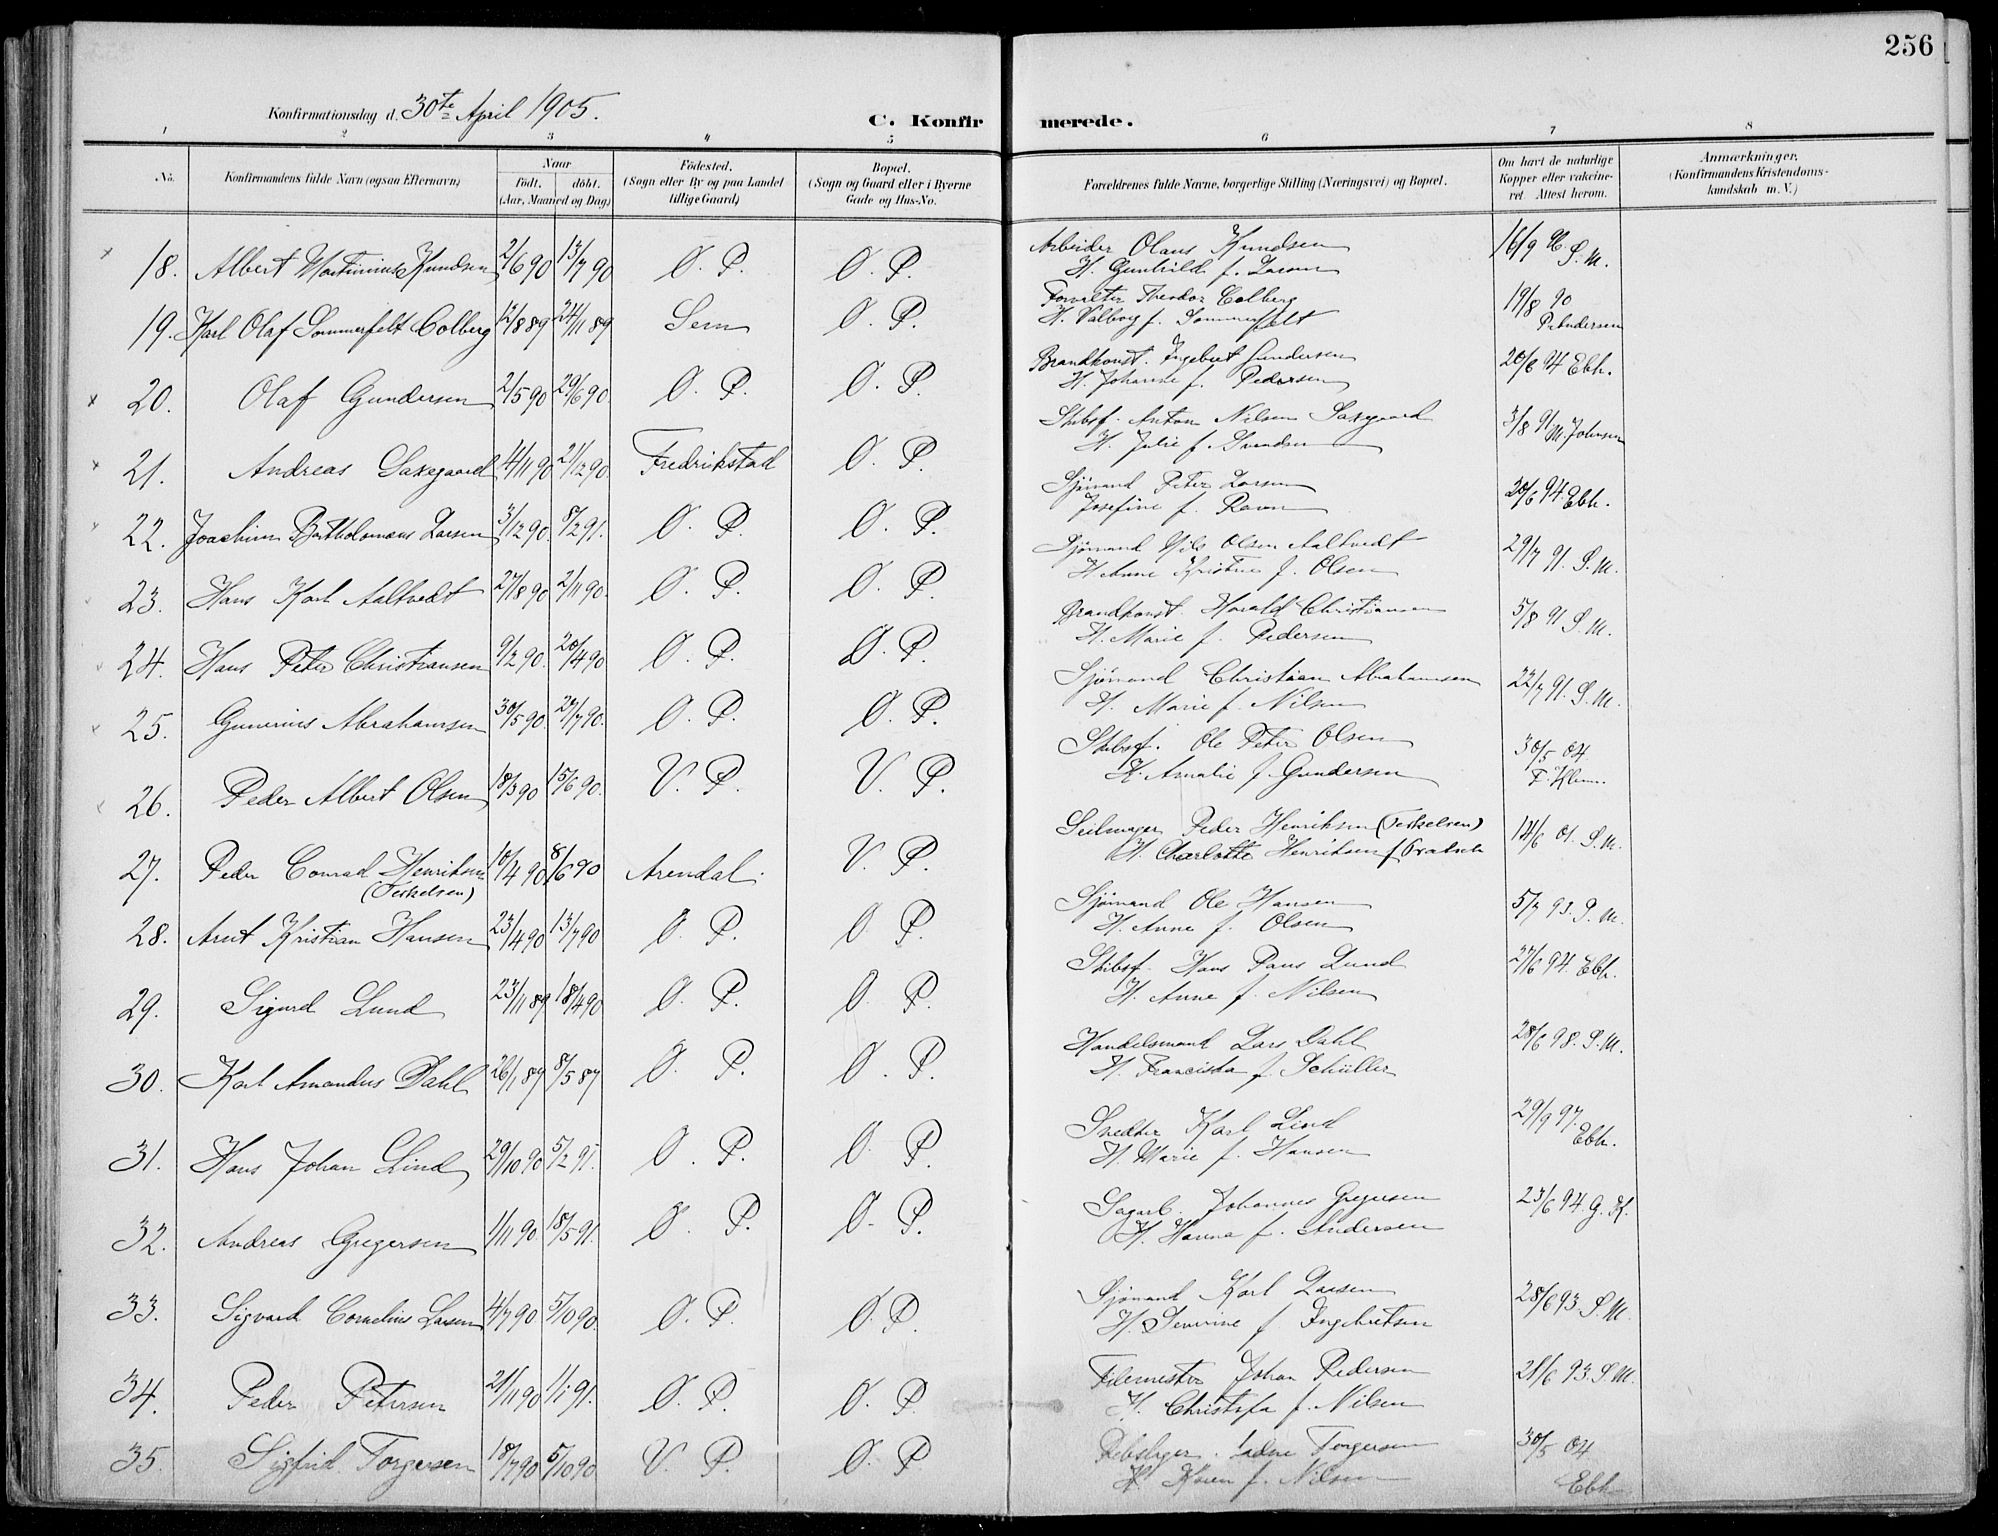 256
Konfirmationsdag d. 30te April 1905.
C. Konfirmerede.
1 2 3 4 5 6 7 8
No.
Konfirmandens fulde Navn (ogsaa Efternavn)
Naar
født. døbt.
(Aar, Maaned og Dag)
Födested.
(Sogn eller By og paa Landet
tillige Gaard)
Bopæl.
(Sogn og Gaard eller i Byerne
Gade og Hus-No.
Forældrenes fulde Navne, borgerlige Stilling (Næringsvei) og Bopæl.
Om havt de naturlige
Kopper eller vakcine-
ret. Attest herom.
Anmærkninger.
(Konfirmandens Kristendoms-
kundskab m. V.)
18. Albert Martinius Knudsen 2/6 90 13/7 90 Ø. P. Ø. P. Arbeider Olaus Knudsen 16/9 96. S. M.
H. Gunhild f. Larsen
19. Karl Olaf Sommerfelt Colberg 12/8 89 24/11 89 Sem Ø. P. Forvalter Theodor Colberg 19/8 90
H. Valborg f. Sommerfelt P. Andersen
20. Olaf Gundersen 2/5 90 29/6 90. Ø. P. Ø. P. Brandkonst. Ingebret Gundersen 20/6 94 Ebh.
H. Johanne f. Pedersen
21. Andreas Saxegaard 4/11 90 21/12 90. Fredrikstad Ø. P. Skibsf. Anton Nilsen Saxgaard 3/8 91 M. Johnsen
H. Julie f. Svendsen
22. Joachim Bartholomæus Larsen 3/12 90. 8/2 91. Ø. P. Ø. P. Sjømand Peter Larsen 20/6 94 Ebh.
Josefine f. Ravn
23. Hans Karl Aaltvedt 27/8 90 2/11 90. Ø. P. Ø. P. Sjømand Nils Olsen Aaltvedt 29/7 91. S. M.
H. Anne Kristine f. Olsen
24. Hans Peter Christiansen 9/2 90. 20/4 90 Ø. P. Ø. P. Brandkonst. Harald Christiansen 5/8 91 S. M.
H. Marie f. Pedersen
25. Gunerius Abrahamsen 30/5 90. 27/7 90. Ø. P. Ø. P. Sjømand Christian Abrahamsen 22/7 91. S. M.
H. Marie f. Nilsen
26. Peder Albert Olsen 18/3 90 15/6 90. V. P. V. P. Skibsf. Ole Peter Olsen 30/5 04
H. Amalie f. Gundersen F. Klem.
27. Peder Conrad Henriksen 10/4 90 8/6 90 Arendal. V. P. Seilmager Peder Henriksen (Terkelsen) 14/6 01. S. M.
(Terkelsen) H. Charlotte Henriksen f.
28. Arnt Kristian Hansen 23/4 90 13/7 90 Ø. P. Ø. P. Sjømand Ole Hansen 5/7 93. S. M.
H. Anne f. Olsen
29. Sigurd Lund 23/11 89 18/4 90 Ø. P. Ø. P. Skibsf. Hans Paus Lund 27/6 94. Ebh.
H. Anne f. Nilsen
30. Karl Amandus Dahl 26/1 89 8/5 87 Ø. P. Ø. P. Handelsmand Lars Dahl 28/6 98. S. M.
H. Franciska f. Schüller
31. Hans Johan Lind 29/10 90 5/2 91. Ø. P. Ø. P. Snedker Karl Lind 29/9 97.
H. Marie f. Hansen Ebh.
32. Andreas Gregersen 1/11 90. 18/5 91. Ø. P. Ø. P. Sagarb. Johannes Gregersen 23/6 94. G. H.
H. Hanna f. Andersen
33. Sigvard Cornelius Larsen 4/7 90 5/10 90. Ø. P. Ø. P. Sjømand Karl Larsen 28/6 93. S. M.
H. Severine f Ingebretsen
34. Peder Petersen 21/11 90 1/1 91. Ø. P. Ø. P. Filemester Johan Pedersen 28/6 93. S. M.
H. Christofa f. Nilsen
35. Sigfrid Torgersen 18/7 90 5/10 90 V. P. Ø. P. Rebslager Torgersen 30/5 04
H. Karen f. Nilsen Ebh